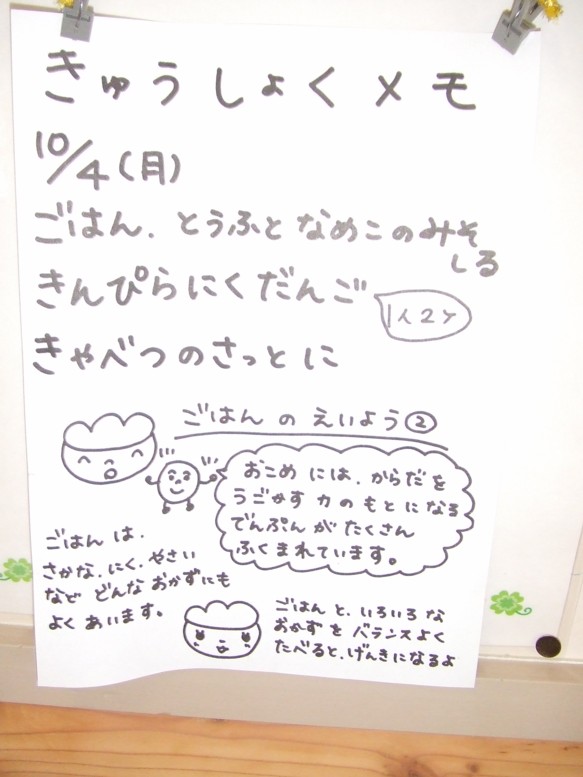 きゅうしょくメモ
10/4(月)
ごはん.とうふとなめこのみそ
しる
きんぴらにくだんご
1人2ケ
きゃべつのさっとに
ごはんのえいよう②
おこめには.からだを
うごかす力のもとになる
でんぷんがたくさん
ふくまれています。
ごはんは.
さかな.にく.やさい
などどんなおかずにも
よくあいます。
ごはんと.いろいろな
おかずをバランスよく
たべると.げんきになるよ